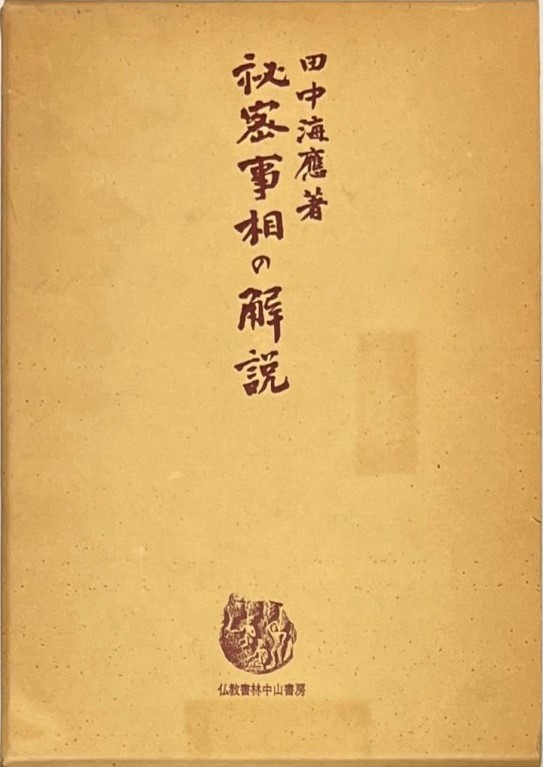 田中海應著
祕密事相の解説
仏教書林中山書房